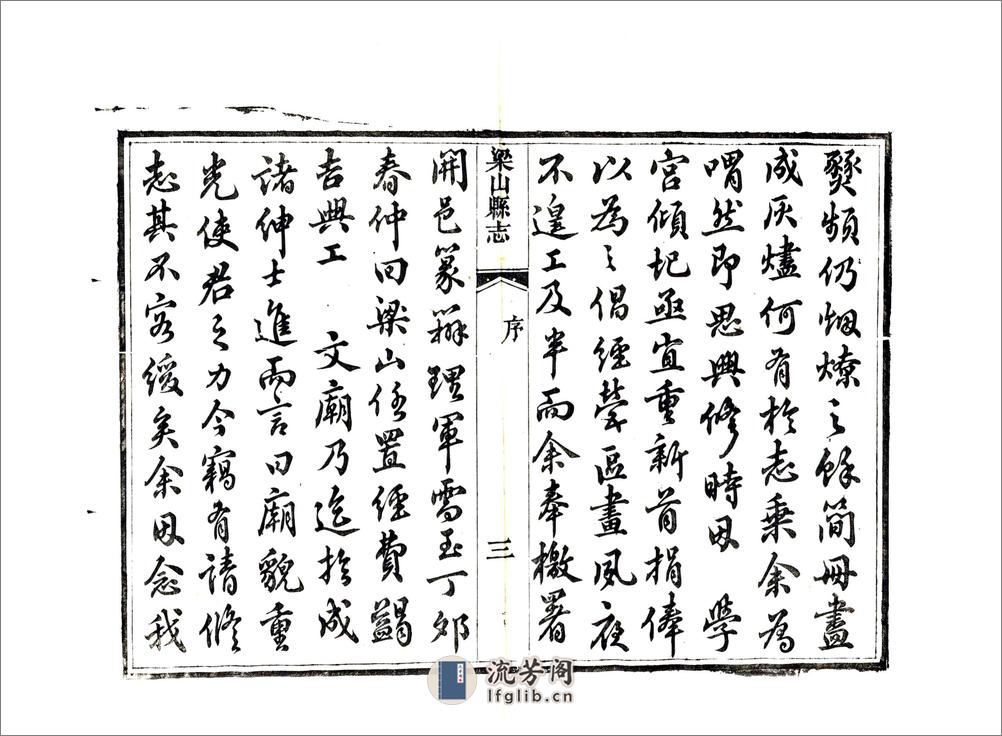 燹頻仍烟燎之餘簡冊盡
成灰燼何有於志乘余為
喟然即思興修時因 學
宮傾圮亟宜重新首捐俸
以為之倡經營區畫夙夜
不遑工及半而余奉檄署
梁山縣志
序
三
開邑篆辦理軍需至丁卯
春仲回梁山任置經費蠲
吉興工 文廟乃迄於成
諸紳士進而言曰廟貌重
光使君之力今竊有請修
志其不容緩矣余因念我
流芳阁
lfglib.cn